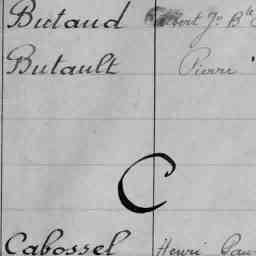 Butaud Albert Jn Bte
Butault Pierre
C
Cabossel Henri